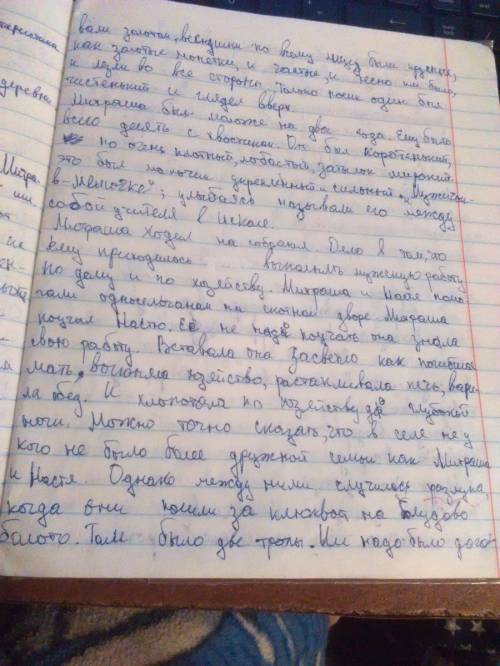 вали золотом, веснушки по всему лицу были крупные,
как золотые монетки, и частые, и тесно им было,
и лезли во все стороны. Только носик один был
чистенький и глядел вверх.
Митраша был моложе на два года. Ему было
всего десять с хвостиком. Он был коротенький,
но очень плотный, лобастый, затылок широкий.
это был мальчик упрямый и сильный. "Мужичок-
в-мешочке", улыбаясь называли его между
собой учителя в школе.
Митраша ходил на собрания Дело в том, что
ему приходилось выполнять мужскую работу
по дому и по хозяйству. Митраша и Настя помо
гали односельчанам на скотном дворе. Митраша
поучал Настю. Её не надо поучать она знала
свою работу. Вставала она засветло как погибшая
мать, выгоняла хозяйство, растапливала печь, вари-
ла обед. И хлопотала по хозяйству до глубокой
ночи. Можно точно сказать, что в селе не у
кого не было более дружной семьи как Митраша
и Настя. Однако между ними случилась размолвка,
когда они пошли за клюквой на Блудово
болото. Там было две тропы. Им надо было дого
Митра-
деревне